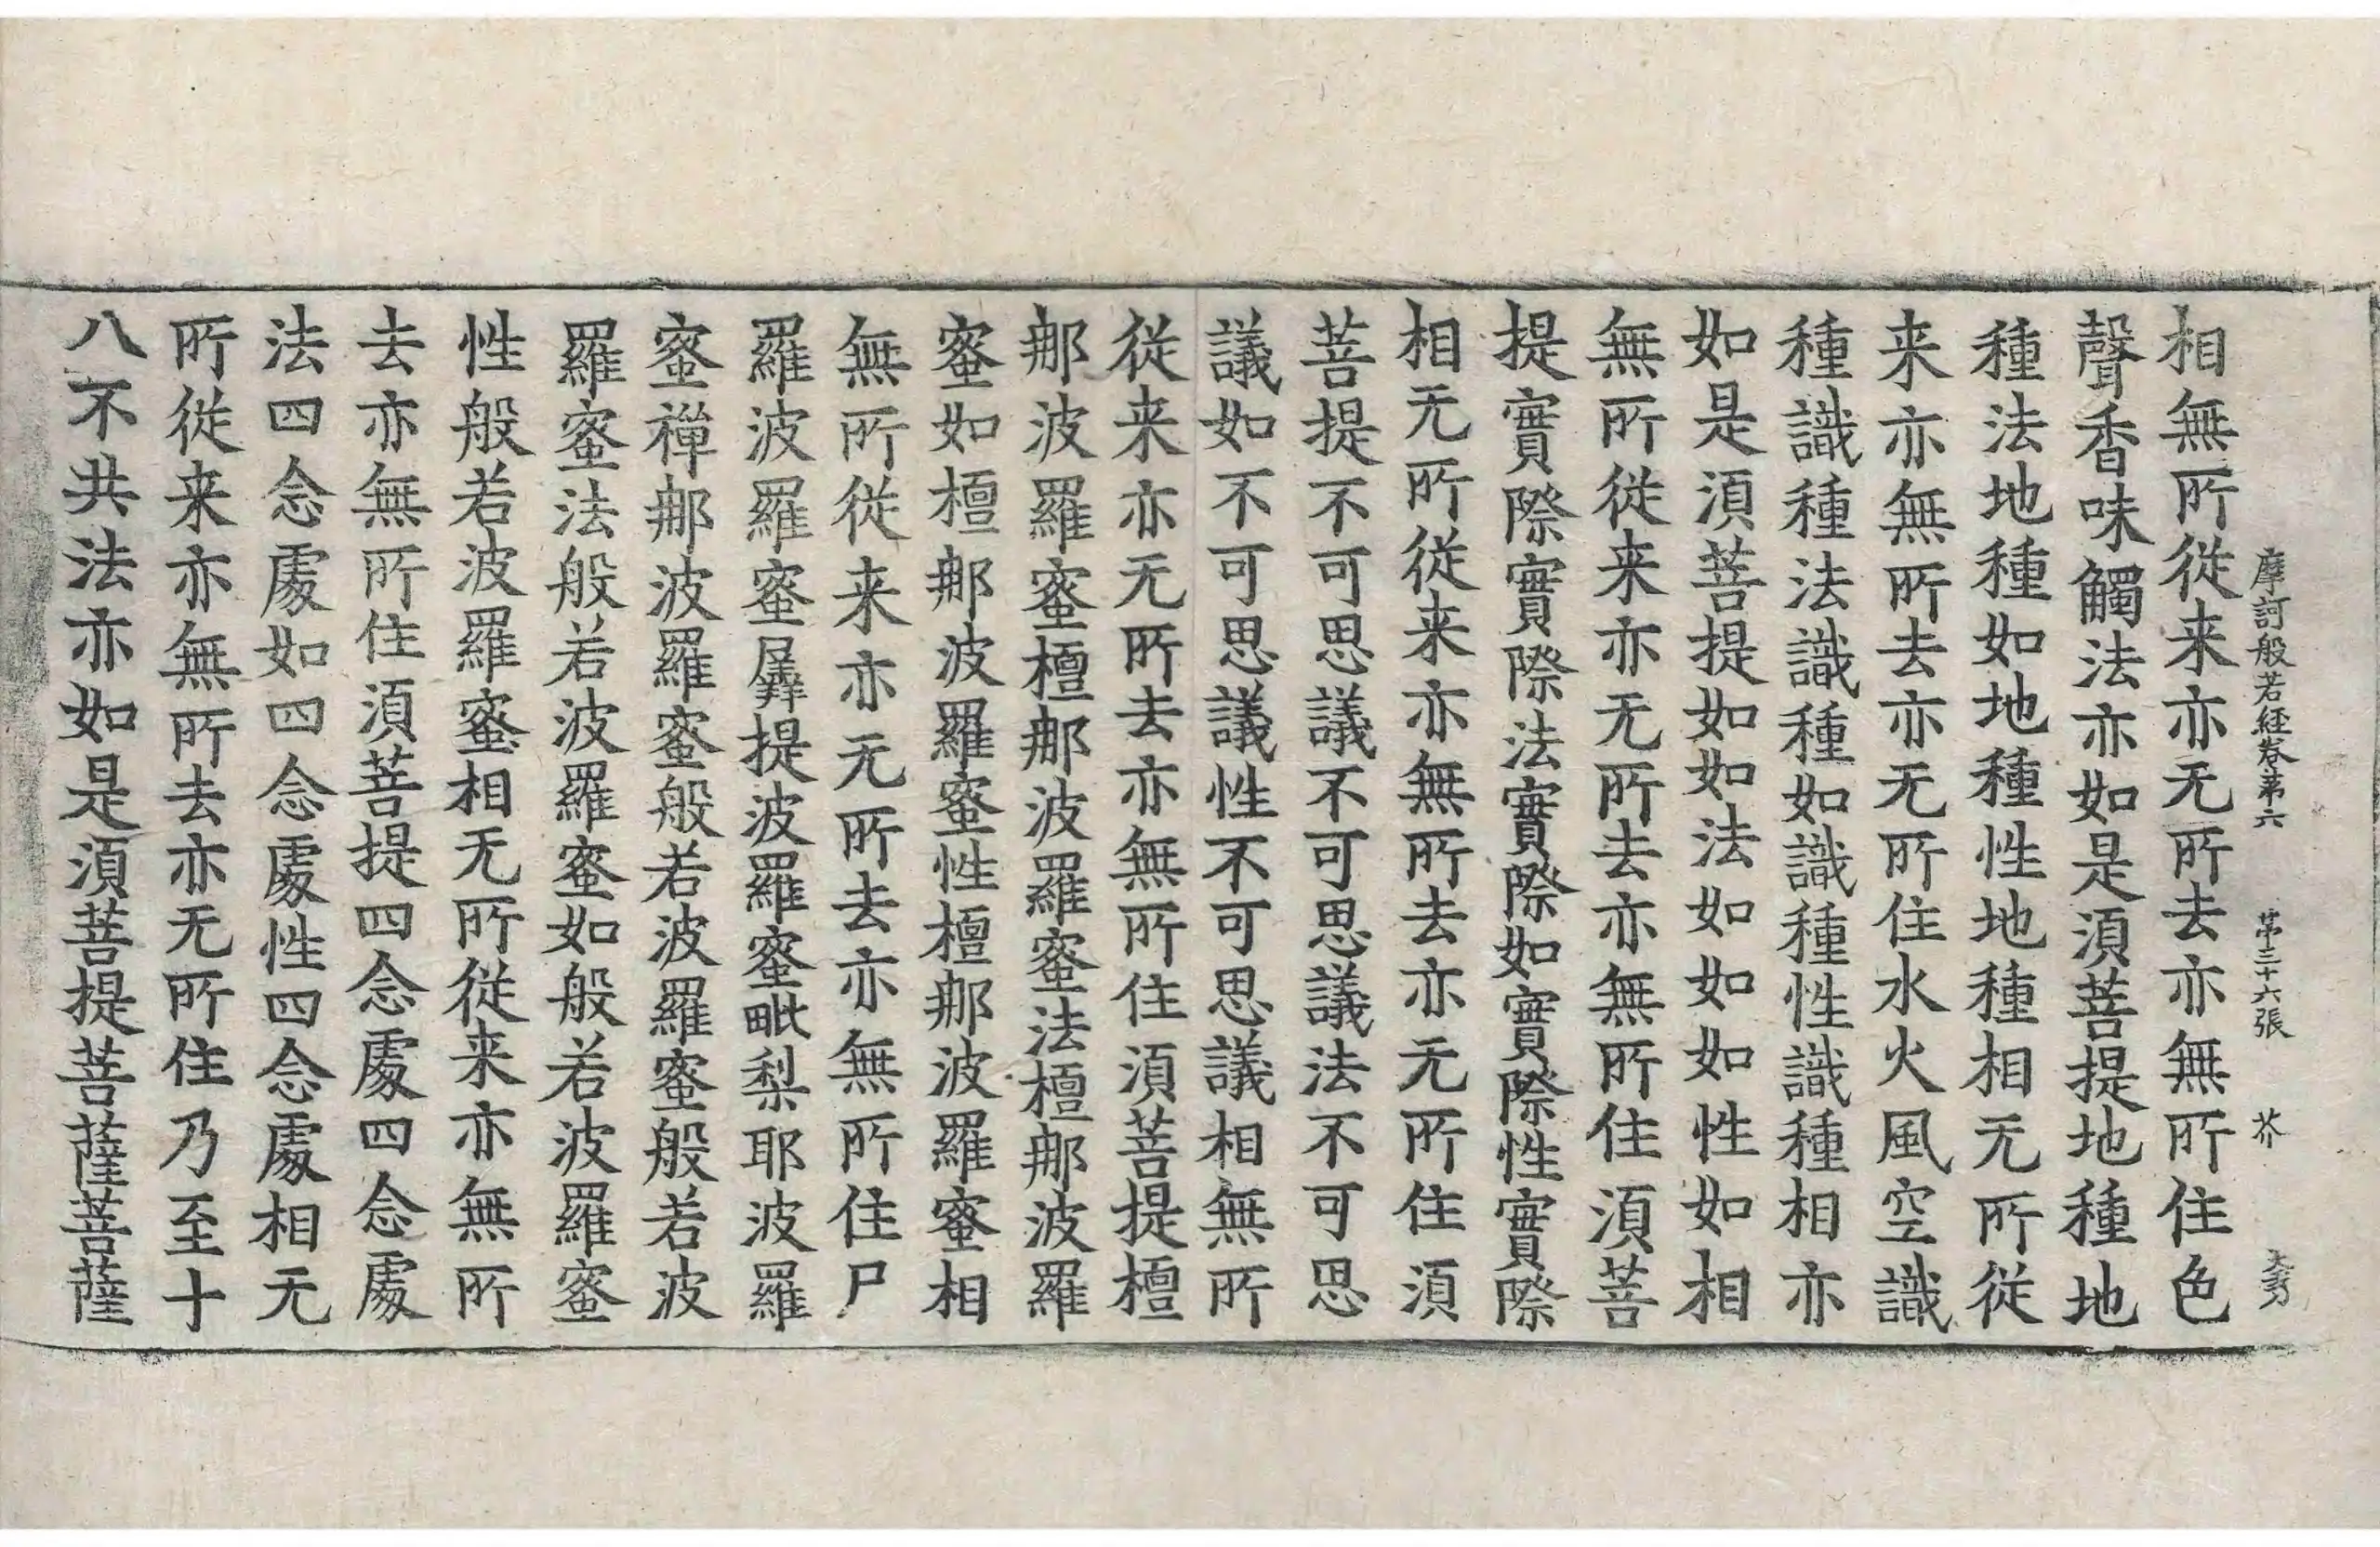 摩訶般若經卷第六 第三十六張 芥
相無所從来亦无所去亦無所住色
聲香味觸法亦如是湏菩提地種地
種法地種如地種性地種相无所從
来亦無所去亦无所住水火風空識
種識種法識種如識種性識種相亦
如是湏菩提如如法如如如性如相
無所從来亦无所去亦無所住湏菩
提實際實際法實際如實際性實際
相无所從来亦無所去亦无所住湏
菩提不可思議不可思議法不可思
議如不可思議性不可思議相無所
從来亦无所去亦無所住湏菩提檀
那波羅蜜檀那波羅蜜法檀那波羅
蜜如檀那波羅蜜性檀那波羅蜜相
無所從来亦无所去亦無所住尸
羅波羅蜜羼提波羅蜜毗梨耶波羅
蜜禪那波羅蜜般若波羅蜜般若波
羅蜜法般若波羅蜜如般若波羅蜜
性般若波羅蜜相无所從来亦無所
去亦無所住湏菩提四念處四念處
法四念處如四念處性四念處相无
所從来亦無所去亦无所住乃至十
八不共法亦如是湏菩提菩薩菩薩